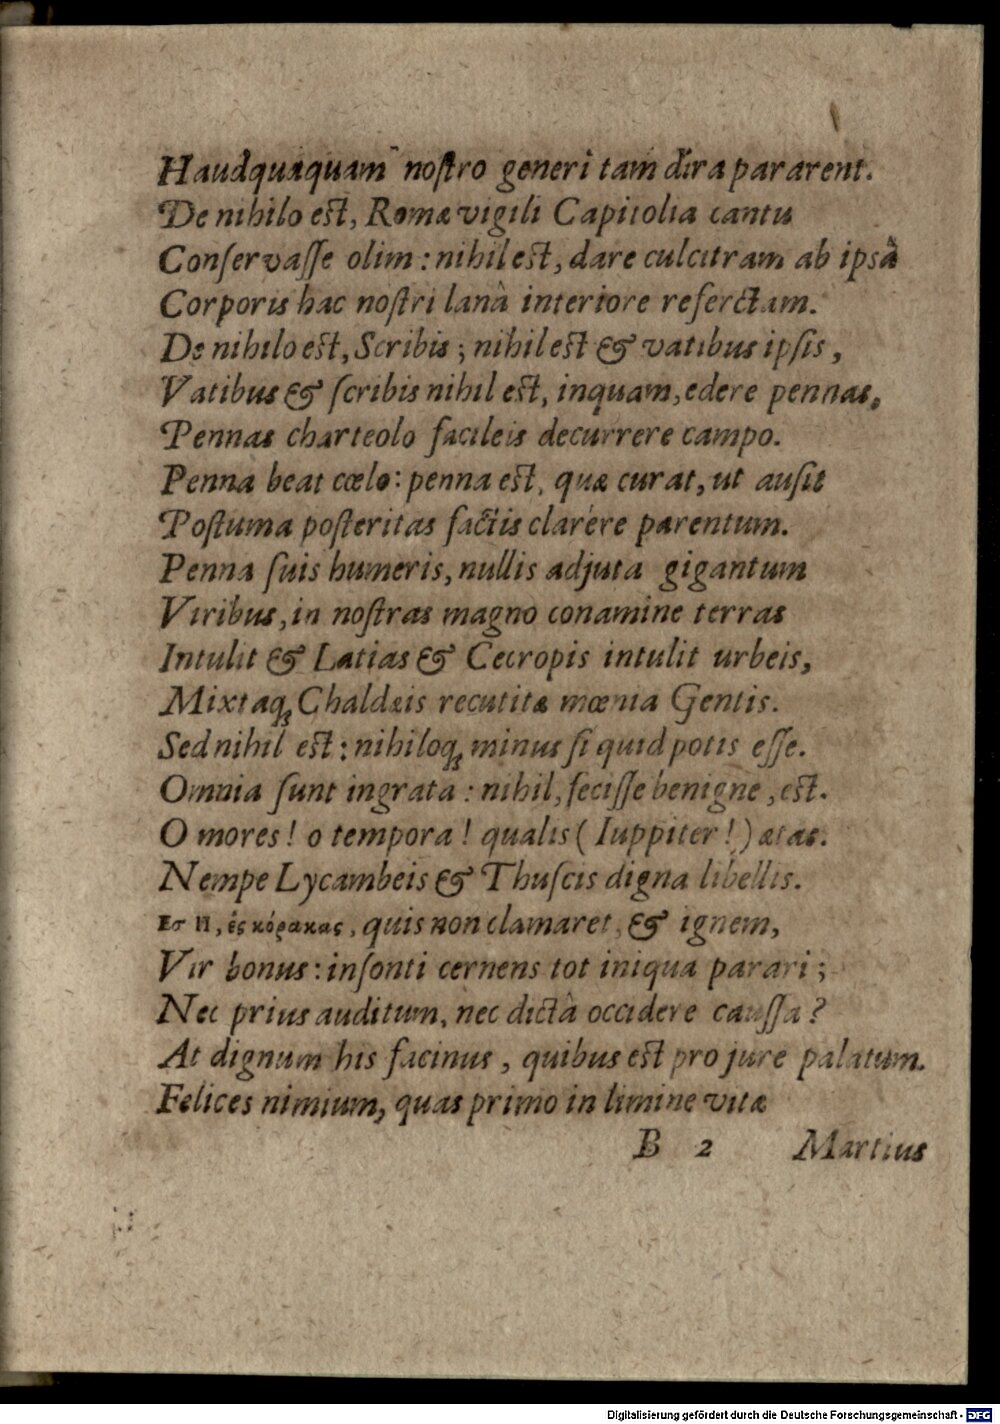 Haudquaquam nostro generi tam dira pararent.
De nihilo est, Romæ vigili Capitolia cantu
Conservasse olim: nihil est, dare culcitram ab ipsâ
Corporis hac nostri lanâ interiore refertam.
De nihilo est, Scribis; nihil est & vatibus ipsis,
Vatibus & scribis nihil est, inquam, edere pennas,
Pennas charteolo facileis decurrere campo.
Penna beat cœlo: penna est, quæ curat, ut ausit
Postuma posteritas factis clarére parentum.
Penna suis humeris, nullis adjuta gigantum
Viribus, in nostras magno conamine terras
Intulit & Latias & Cecropis intulit urbeis,
Mixtaq; Chaldæis recutitæ mœnia Gentis.
Sed nihil est: nihiloq; minus si quid potis esse.
Omnia sunt ingrata: nihil, fecisse benigne, est.
O mores! o tempora! qualis (Iuppiter!) ætas.
Nempe Lycambeis & Thuscis digna libellis.
ές κόρακας, quis non clamaret, & ignem,
Vir bonus: insonti cernens tot iniqua parari;
Nec prius auditum, nec dictâ occidere caussa?
At dignum his facinus, quibus est pro jure palatum.
Felices nimium, quas primo in limine vitæ
B 2 Martius
Digitalisierung gefördert durch die Deutsche Forschungsgemeinschaft - DFG